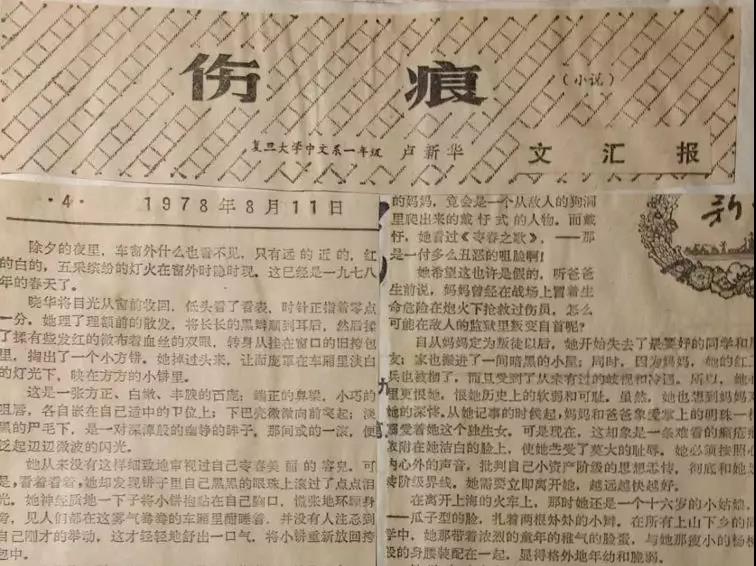 伤痕
（小说）
复旦大学中文系一年级 卢新华 文汇报
·4· 1978年8月11日
除夕的夜里，车窗外什么也看不见，只有远的近的，红
的白的，五彩缤纷的灯火在窗外时隐时现。这已经是一九七八
年的春天了。
晓华将目光从窗前收回，低头看了看表，时针正指着零点
一分。她理了理额前的散发，将长长的黑辫顺到耳后，然后揉
了揉有些发红的微布着血丝的双眼，转身从挂在窗口的旧挎包
里，掏出了一个小方镜。她掉过头来，让面庞罩在车厢里淡白
的灯光下，映在方方的小镜里。
这是一张方正、白嫩、丰腴的面庞：端正的鼻梁，小巧的
咀唇，各自嵌在自己适中的卫位上；下巴壳微微向前突起；淡
黑的尸毛下，是一对深潭般的幽静的眸子，那间或的一滚，便
泛起辺辺微波的闪光。
她从来没有这样细致地审视过自己青春美丽的容皃，可
是，看着看着，她却发现镜子里自己黑黑的眼珠上滚过了点点泪
光，她神经质地一下子将小镜抱贴在自己胸口，慌张地环顾身
旁，见人们都在这雾气弯弯的车厢里酣睡着，并没有人注忍到
自己刚才的举动，这才轻轻地舒出一口气，将小镜重新放回挎
包中。
的妈妈，竟会是一个从敌人的狗洞
里爬出来的戴仔式的人物。而戴
仔，她看过《青春之歌》，——那
是一付多么丑恶的咀脸啊！
她希望这也许是假的，听爸爸
生前说，妈妈曾经在战场上冒着生
命危险在炮火下抢救过伤员，怎么
可能在敌人的监狱里叛变自首呢？
自从妈妈定为叛徒以后，她开始失去了最要好的同学和朋
友；家也搬进了一间暗黑的小屋；同时，因为妈妈，她的红卫
兵也被撤了，而且受到了从未有过的歧视和冷遇。所以，她心
里更恨她，恨她历史上的软弱和可耻。虽然，她也想到妈妈对
她的深情。从她记事的时候起，妈妈和爸爸象爱掌上的明珠一样
溺爱着她这个独生女。可是现在，这却象是一条难看的癞疮疤
依附在她洁白的脸上，使她蒙受了莫大的耻辱。她必须按照心
内心外的声音，批判自己小资产阶级的思想感情，彻底和她划
清阶级界线。她需要立即离开她，越远越快越好。
在离开上海的火车上，那时她还是一个十六岁的小姑娘，
——瓜子型的脸，扎着两根短短的小辫，在所有上山下乡的同
学中，她那带着浓烈的童年的稚气的脸蛋，与她那瘦小的杨柳
般的身腰装配在一起，显得格外地年幼和脆弱。